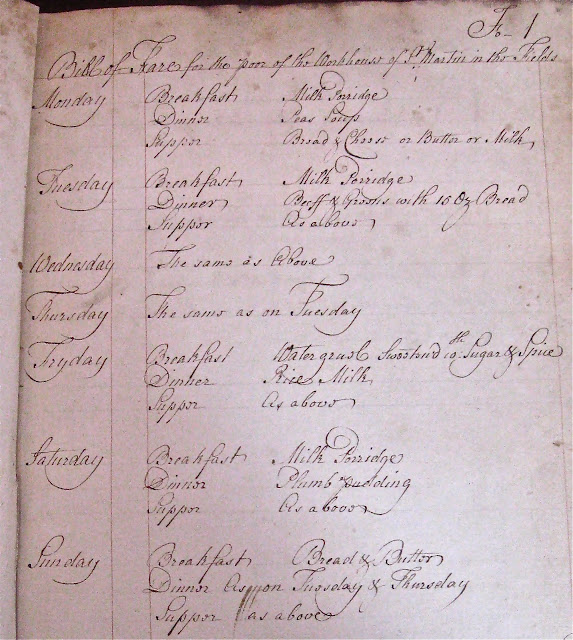 Fo- 1
Bill of Fare for the poor of the Workhouse of St Martin in the Fields
Monday Breakfast Milk Porridge
Dinner Peas Soup
Supper Bread & Cheese or Butter or Milk
Tuesday Breakfast Milk Porridge
Dinner Beeff & Greens with 10 Oz Bread
Supper As above
Wednesday The same as Above
Thursday The same as on Tuesday
Fryday Breakfast Watergruel Sweetned wth Sugar & Spice
Dinner Rice Milk
Supper As above
Saturday Breakfast Milk Porridge
Dinner Plumb pudding
Supper As above
Sunday Breakfast Bread & Butter
Dinner As on Tuesday & Thursday
Supper as above